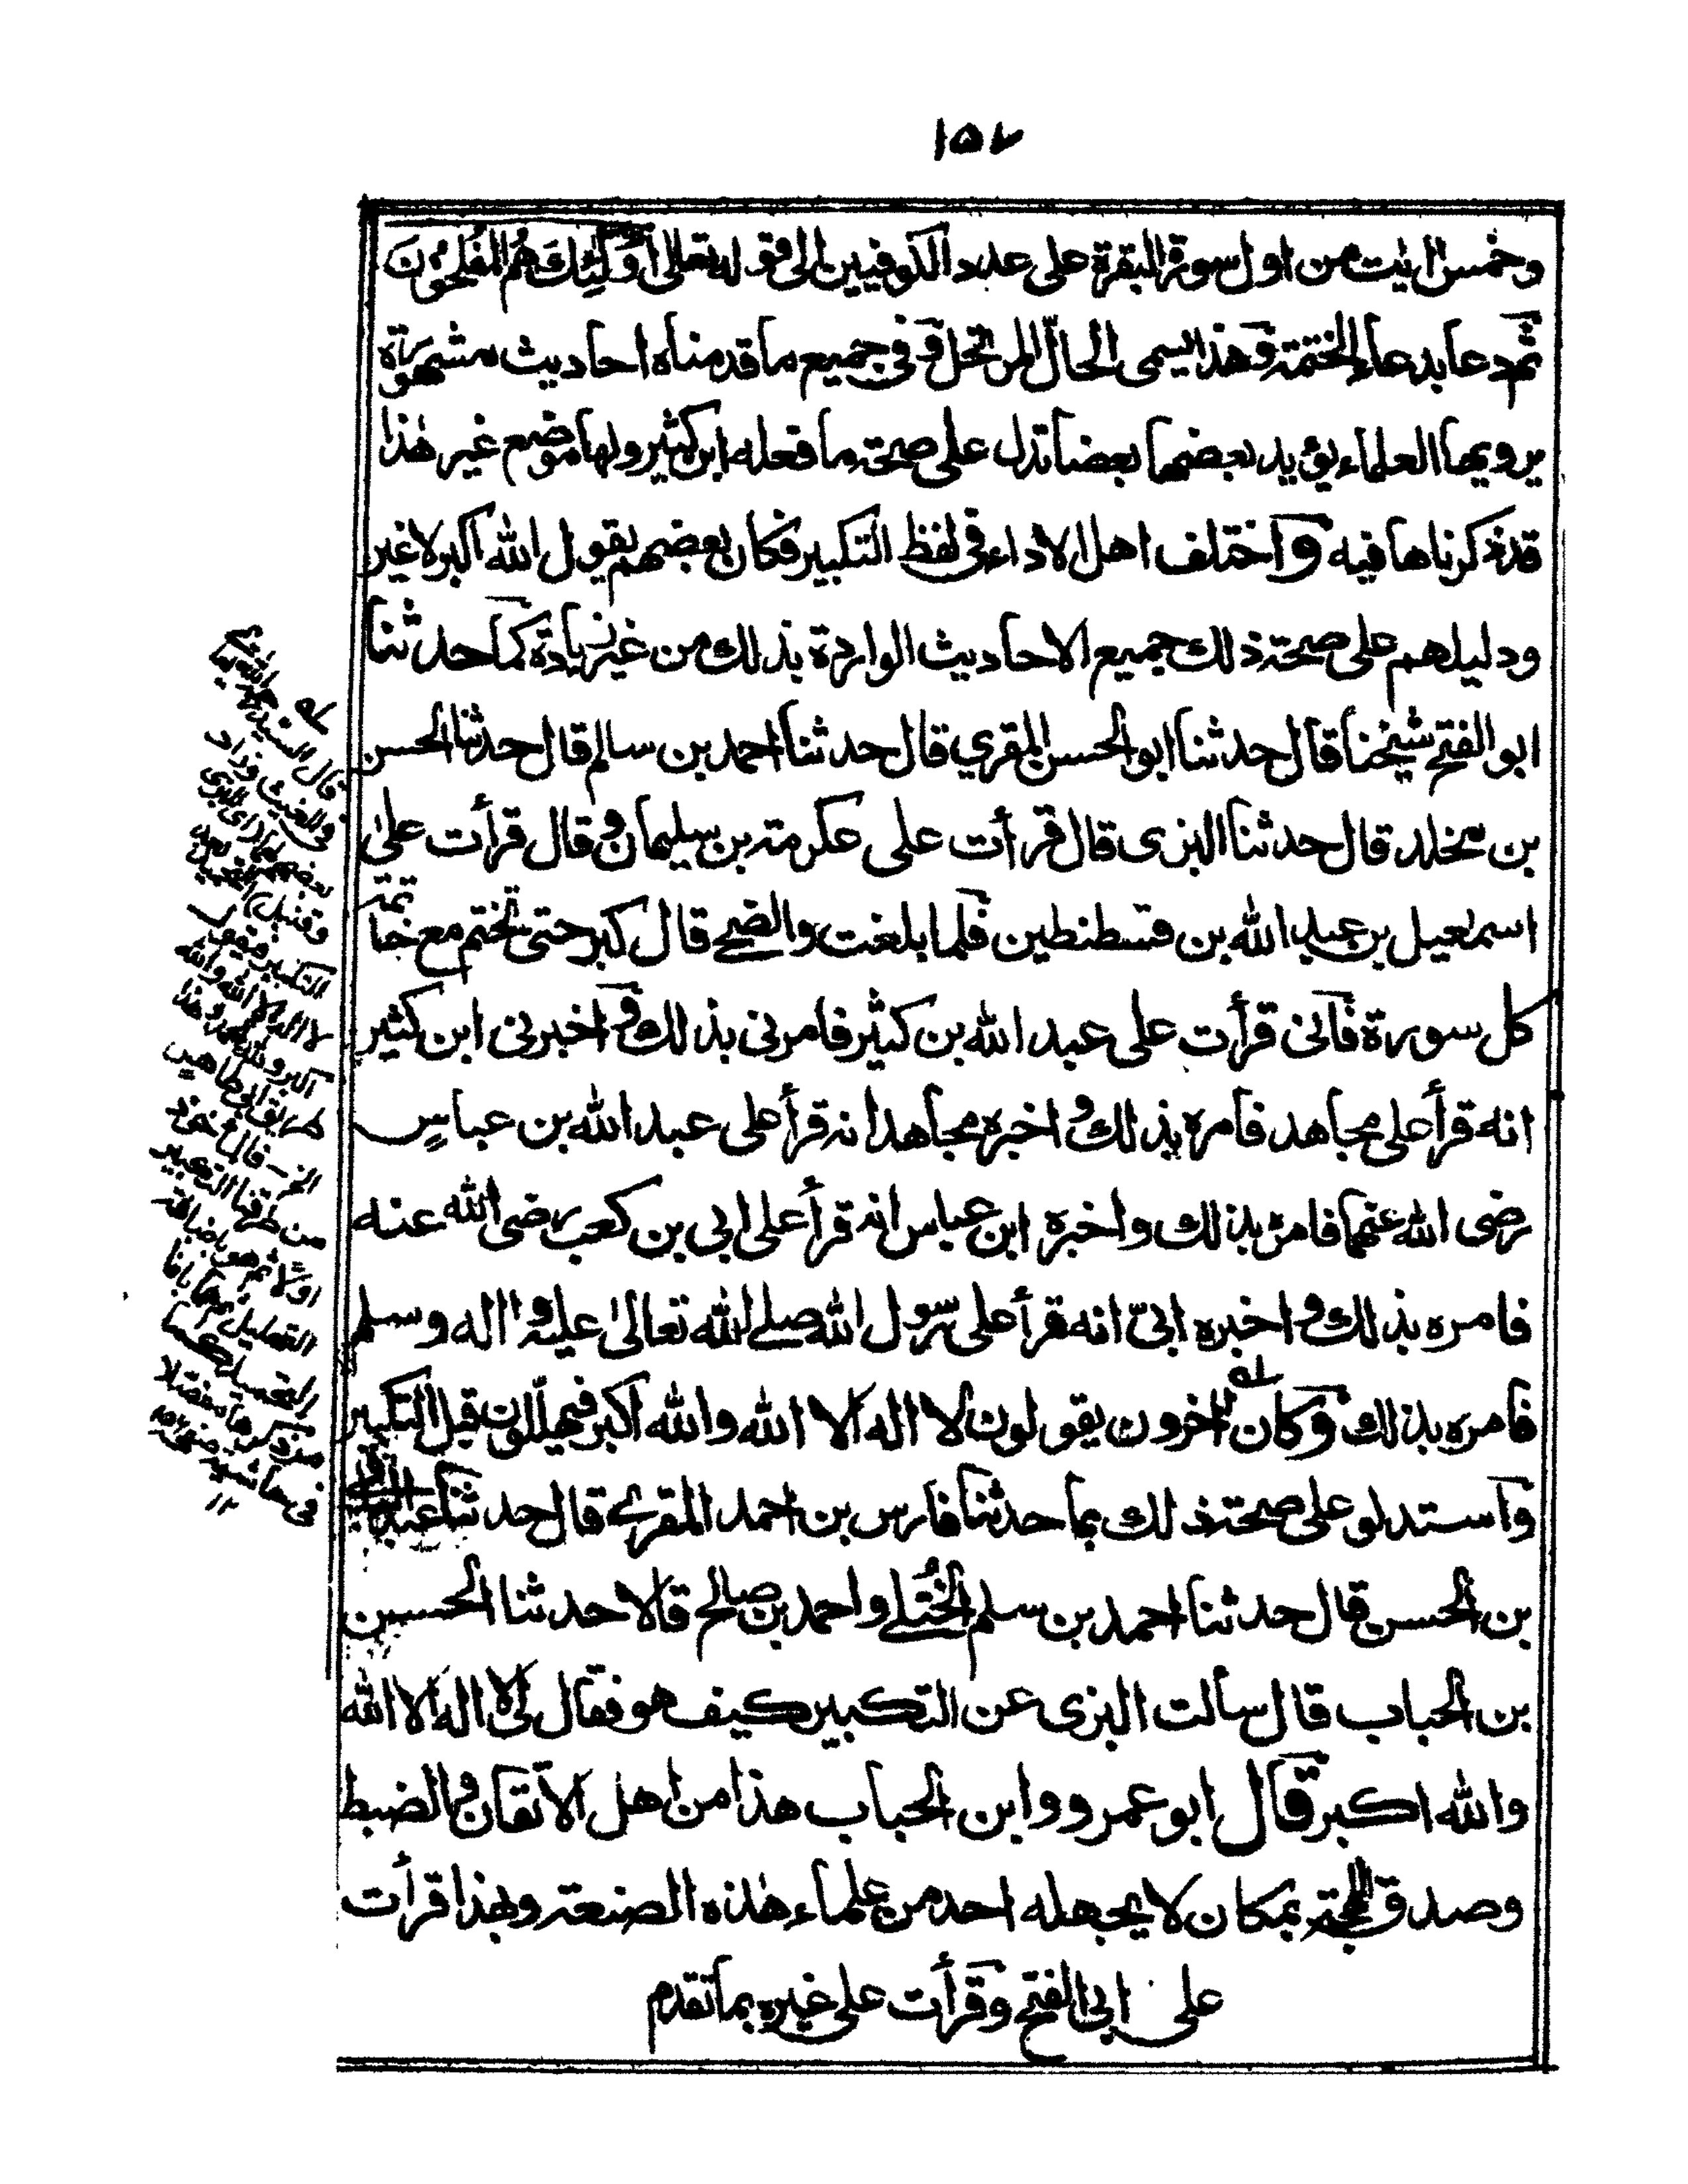 ١٥٧
وخمس اٰيٰت من اول سورة البقرة على عدد الكوفيين الى قوله تعالى أُولٰئِكَ هُمُ المُفلِحُونَ
ثم دعا بدعاء الختمة وهذا يسمى الحالّ المرتحل وفى جميع ما قدمناه احاديث مشهورة
يرويها العلماء يؤيد بعضها بعضا تدل على صحة ما فعله ابن كثير ولها موضع غير هٰذا
قد ذكرناها فيه واختلف اهل الاداء فى لفظ التكبير فكان بعضهم يقول الله اكبر لا غير
ودليلهم على صحة ذلك جميع الاحاديث الواردة بذلك من غير زيادة كما حدثنا
ابو الفتح شيخنا قال حدثنا ابو الحسن المقري قال حدثنا احمد بن سالم قال حدثنا الحسن
بن مخلد قال حدثنا البزى قال قرأت على عكرمة بن سليمان وقال قرأت على
اسمٰعيل بن عبد الله بن قسطنطين فلما بلغت والضحى قال كبر حتى تختم مع خاتمة
كل سورة فانى قرأت على عبد الله بن كثير فامرنى بذلك واخبرنى ابن كثير
انه قرأ على مجاهد فامره بذلك واخبره مجاهد انه قرأ على عبد الله بن عباس
رضى الله عنهما فامره بذلك واخبره ابن عباس انه قرأ على ابى بن كعب رضى الله عنه
فامره بذلك واخبره ابىّ انه قرأ على رسول الله صلى الله تعالىٰ عليه واله وسلم
فامره بذلك وكان اخرون يقولون لا اله الا الله والله اكبر فيهللون قبل التكبير
واستدلو على صحة ذلك بما حدثنا فارس بن احمد المقرى قال حدثنا عبد الباقى
بن الحسن قال حدثنا احمد بن سلم الخُتَّلى واحمد بن صالح قالا حدثنا الحسين
بن الحباب قال سألت البزى عن التكبير كيف هو فقال لى لا اله الا الله
والله اكبر قال ابو عمرو وابن الحباب هذا من اهل الاتقان والضبط
وصدق اللهجة بمكان لا يجهله احد من علماء هٰذه الصنعة وبهذا قرأت
على ابى الفتح وقرأت على غيره بما تقدم
قال السيد
والغيث وزاد
التكبير فيقول
لا اله الا الله والله
اكبر ولله الحمد وهذا
طريق
من طرقنا التكبير
اولا ثم هو باضافة
التهليل
فى حاشية
١٢